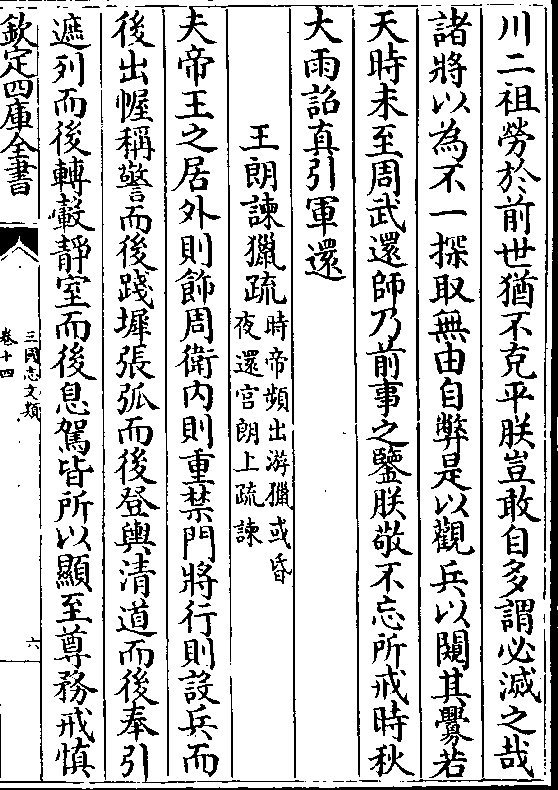 川二祖勞於前世猶不克平朕豈敢自多謂必滅之哉
諸將以為不一探取無由自弊是以觀兵以闚其釁若
天時未至周武還師乃前事之鑒朕敬不忘所戒時秋
大雨詔真引軍還
王朗諫獵疏時帝頻出游獵或昏
夜還宫朗上疏諫
夫帝王之居外則飾周衛内則重禁門將行則設兵而
後出幄稱警而後踐墀張弧而後登輿清道而後奉引
遮列而後轉轂靜室而後息駕皆所以顯至尊務戒慎
欽定四庫全書
三國志文類
卷十四
六